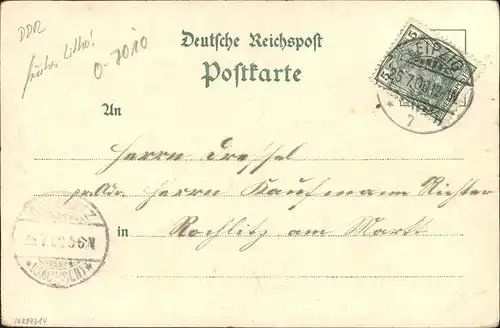 DDR
Litho!
0-7010
Deutsche Reichspost
Postkarte
LEIPZIG
25.7.00.12-
7
An
Herrn Dressel
pr. Adr. Herrn Kaufmann Richter
in Rochlitz am Markt
7.00.5-6.N
*(SACHSEN)*